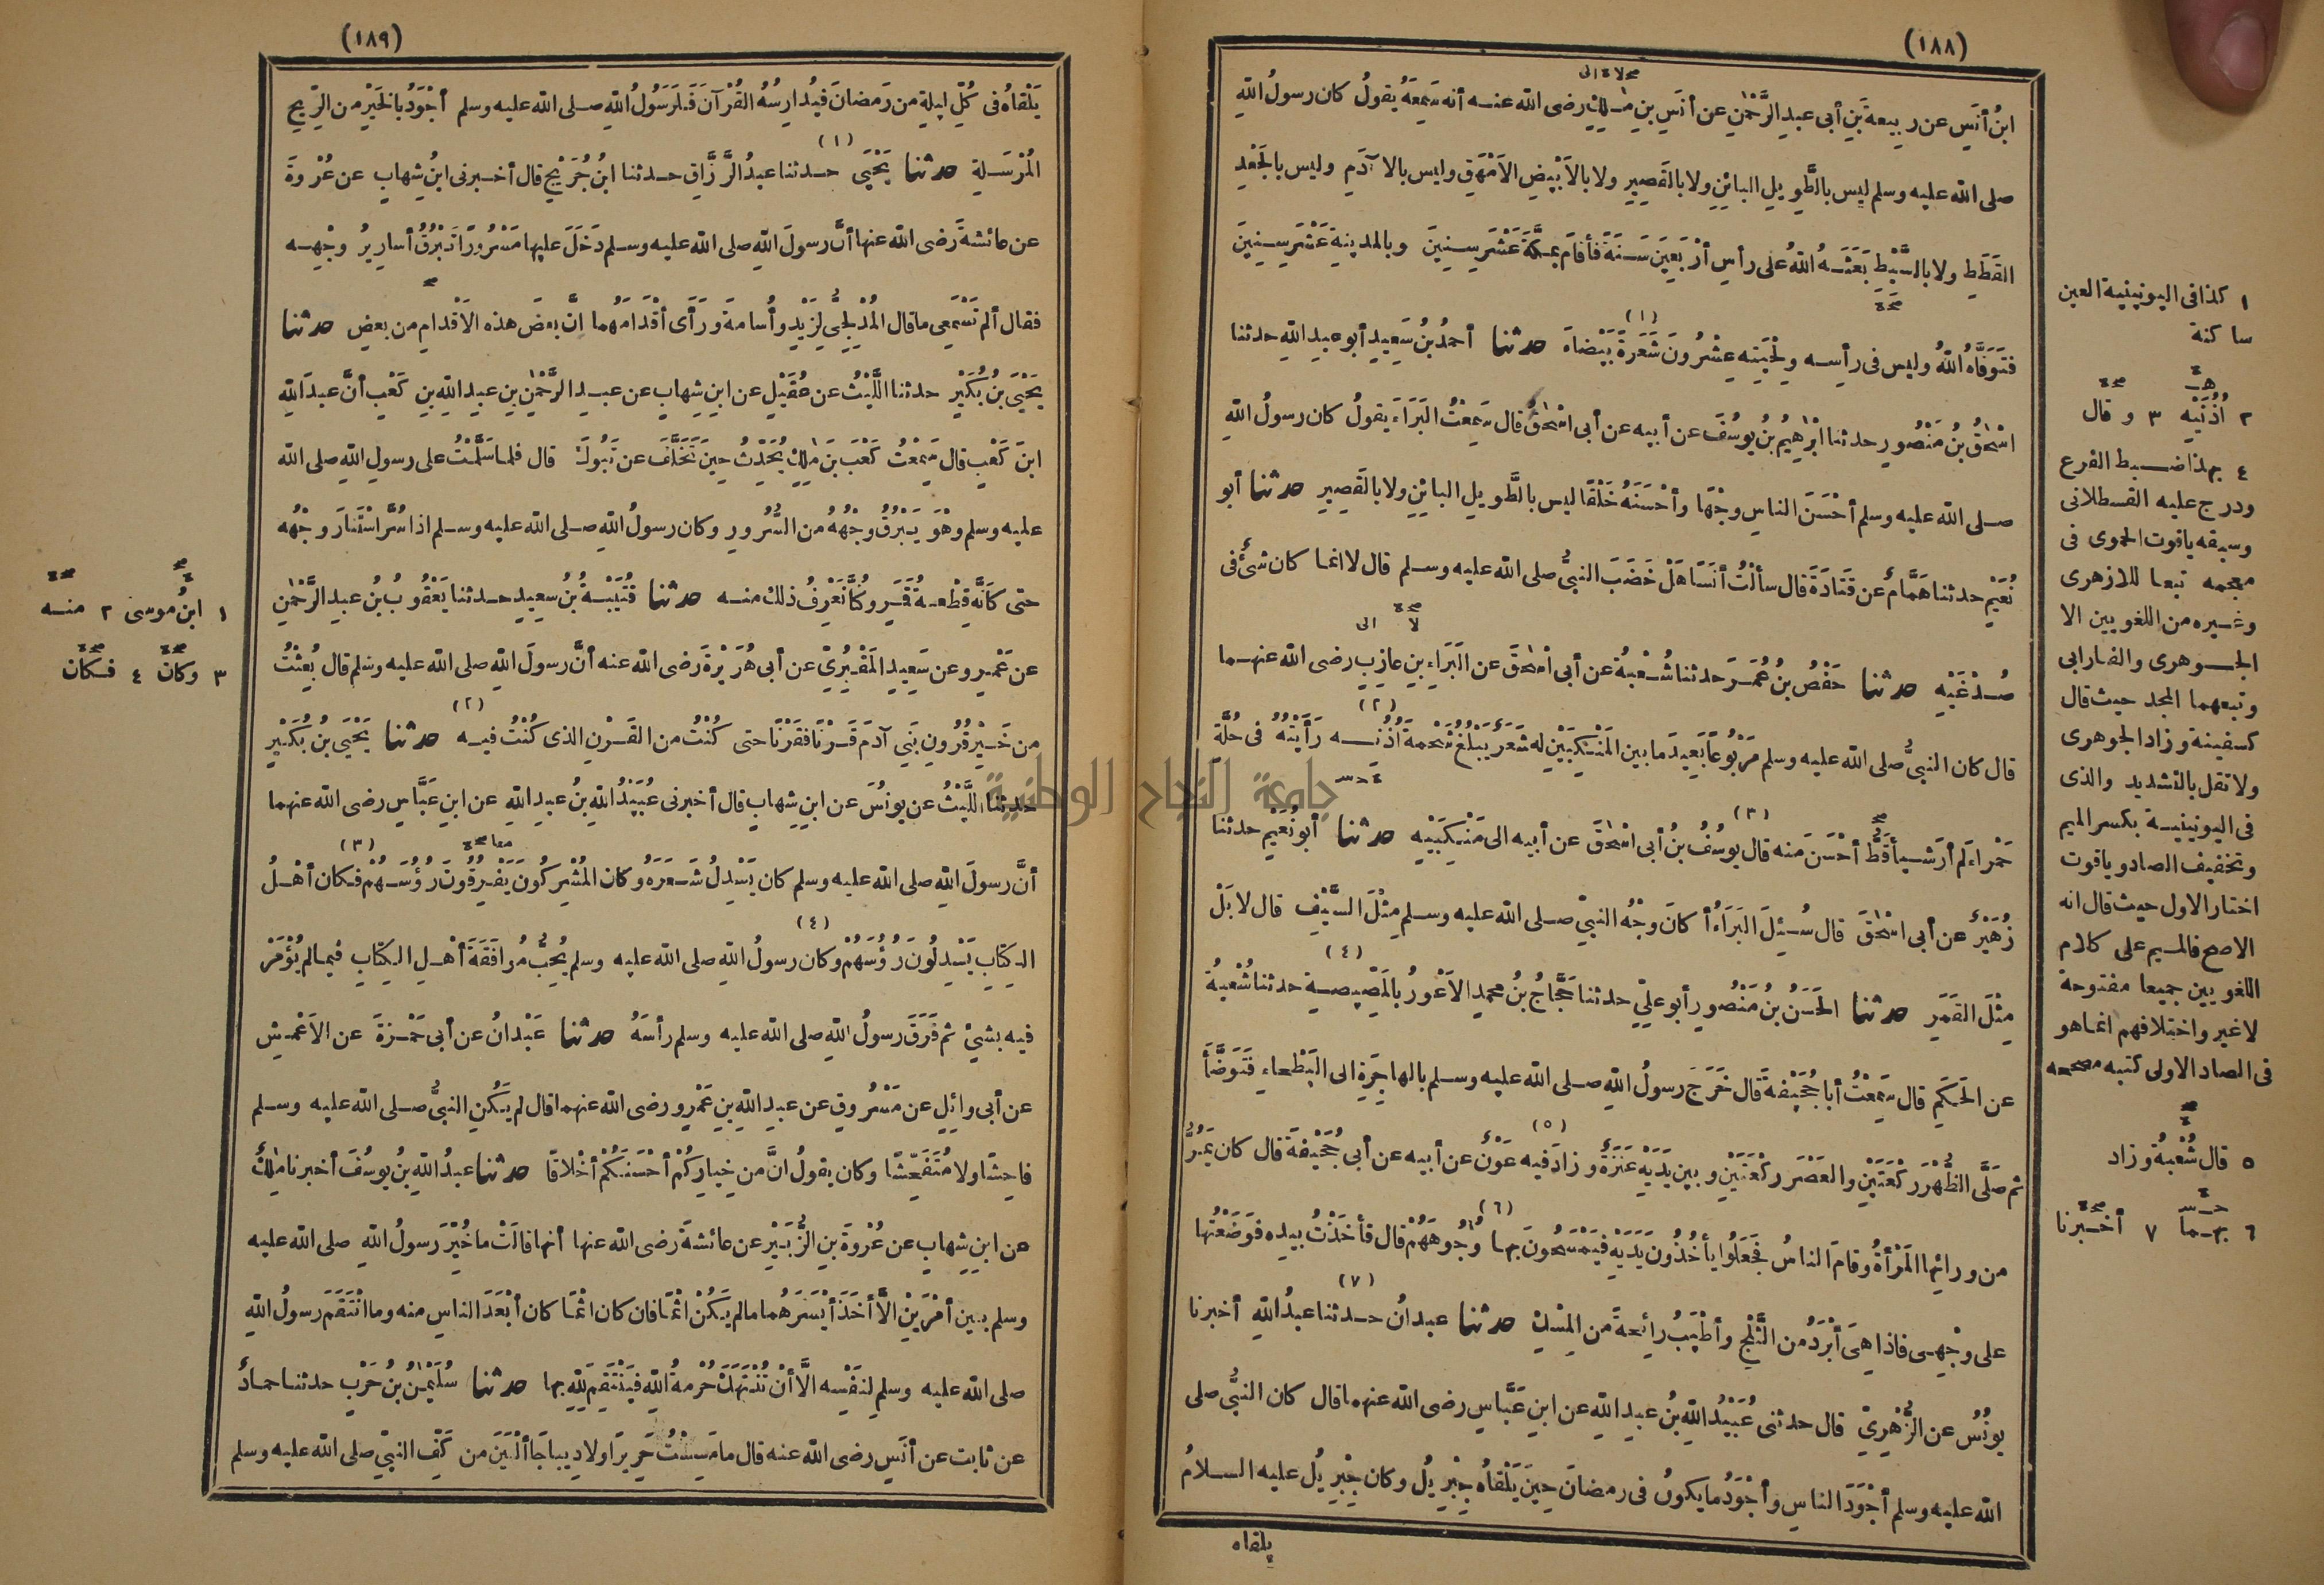 (١٨٨)
ابنُ أنَسٍ عن رَبِيعةَ بنِ أبى عبدِ الرَّحْمٰنِ عن أنَسِ بنِ مٰلِكٍ رضى الله عنه أنه سَمِعَهُ يقولُ كان رسولُ اللهِ
صلى الله عليه وسلم ليس بالطَّوِيلِ البائِنِ ولا بالقَصِيرِ ولا بالاَبْيَضِ الاَمْهَقِ وليس بالاٰدَمِ وليس بالجَعْدِ
القَطَطِ ولا بالسَّبْطِ بَعَثَهُ اللهُ على رأسِ أرْبَعِينَ سَنَةً فأقامَ بمكَّةَ عَشْرَ سِنِينَ وبالمدينةِ عَشْرَ سِنِينَ
فتَوَفَّاهُ اللهُ وليس فى رأسِه ولِحْيَتِه عِشْرُونَ شَعَرَةً بَيْضاءَ حدثنا أحمدُ بنُ سَعِيدٍ أبو عبدِ اللهِ حدثنا
اسْحٰقُ بنُ مَنْصُورٍ حدثنا ابْرٰهِيمُ بنُ يوسُفَ عن أبيه عن أبى اسْحٰقَ قال سَمِعْتُ البَرَاءَ يقولُ كان رسولُ اللهِ
صلى الله عليه وسلم أحْسَنَ الناسِ وجْهًا وأحْسَنَهُ خَلْقًا ليس بالطَّوِيلِ البائِنِ ولا بالقَصِيرِ حدثنا أبو
نُعَيْمٍ حدثنا هَمَّامٌ عن قَتَادَةَ قال سألْتُ أنَسًا هَلْ خَضَبَ النبىُّ صلى الله عليه وسلم قال لا انما كان شىْءٌ فى
صُدْغَيْهِ حدثنا حَفْصُ بنُ عُمَرَ حدثنا شُعْبةُ عن أبى اسْحٰقَ عن البَرَاءِ بنِ عازِبٍ رضى الله عنهما
قال كان النبىُّ صلى الله عليه وسلم مَرْبُوعًا بَعِيدَ ما بين المَنْكِبَيْنِ له شَعَرٌ يَبْلُغُ شَحْمةَ أُذُنِه رَأيْتُهُ فى حُلَّةٍ
حَمْراءَ لم أرَ شيأ قَطُّ أحْسَنَ منه قال يوسُفُ بنُ أبى اسْحٰقَ عن أبيه الى مَنْكِبَيْهِ حدثنا أبو نُعَيْمٍ حدثنا
زُهَيْرٌ عن أبى اسْحٰقَ قال سُئِلَ البَرَاءُ أكانَ وجْهُ النبىِّ صلى الله عليه وسلم مِثْلَ السَّيْفِ قال لا بَلْ
مِثْلَ القَمَرِ حدثنا الحَسَنُ بنُ مَنْصُورٍ أبو علىٍّ حدثنا حَجَّاجُ بنُ محمدٍ الاَعْوَرُ بالمَصِّيصةِ حدثنا شُعْبةُ
عن الحَكَمِ قال سَمِعْتُ أبا جُحَيْفةَ قال خَرَجَ رسولُ اللهِ صلى الله عليه وسلم بالهاجِرَةِ الى البَطْحاءِ فتَوَضَّأَ
ثم صَلَّى الظُّهْرَ رَكْعَتَيْنِ والعَصْرَ ركْعَتَيْنِ وبين يَدَيْهِ عَنَزَةٌ وزادَ فيه عَوْنٌ عن أبيه عن أبى جُحَيْفةَ قال كان يَمُرُّ
من ورائِها المَرْأةُ وقامَ الناسُ فجَعَلُوا يأخُذُونَ يَدَيْهِ فيَمْسَحُونَ بها وُجُوهَهُمْ قال فأخَذْتُ بيدِه فوَضَعْتُها
على وجْهِى فاذا هِىَ أبْرَدُ من الثَّلْجِ وأطْيَبُ رائِحةً من المِسْكِ حدثنا عبدانُ حدثنا عبدُ اللهِ أخبرنا
يونُسُ عن الزُّهْرِىِّ قال حدثنى عُبَيْدُ اللهِ بنُ عبدِ اللهِ عن ابنِ عَبَّاسٍ رضى الله عنهما قال كان النبىُّ صلى
الله عليه وسلم أجْوَدَ الناسِ وأجْوَدُ ما يكونُ فى رمضانَ حِينَ يَلْقاهُ جِبْرِيلُ وكان جِبْرِيلُ عليه السلامُ
يلقاه
١ كذا فى اليونينية العين
ساكنة
٢ أُذُنَيْهِ ٣ وقال
٤ بهذا ضبط الفرع
ودرج عليه القسطلانى
وسبقه ياقوت الحموى فى
معجمه تبعا للازهرى
وغيره من اللغويين الا
الجوهرى والفارابى
وتبعهما المجد حيث قال
كسفينة وزاد الجوهرى
ولا تقل بالتشديد والذى
فى اليونينية بكسر الميم
وتخفيف الصاد وياقوت
اختار الاول حيث قال انه
الاصح فالميم على كلام
اللغويين جميعا مفتوحة
لاغير واختلافهم انما هو
فى الصاد الاولى كتبه مصححه
٥ قال شُعْبةُ وزاد
٦ بهما ٧ أخبرنا
(١٨٩)
يَلْقاهُ فى كُلِّ ليلةٍ من رَمضانَ فيُدارِسُهُ القُرْآنَ فَلَرَسُولُ اللهِ صلى الله عليه وسلم أجْوَدُ بالخَيْرِ من الرِّيحِ
المُرْسَلةِ حدثنا يَحْيَى حدثنا عبدُ الرَّزَّاقِ حدثنا ابنُ جُرَيْجٍ قال أخبرنى ابنُ شِهابٍ عن عُرْوةَ
عن عائشةَ رضى الله عنها أنَّ رسولَ اللهِ صلى الله عليه وسلم دَخَلَ عليها مَسْرُورًا تَبْرُقُ أسارِيرُ وجْهِه
فقال ألم تَسْمَعِى ما قال المُدْلِجِىُّ لِزَيْدٍ وأُسامةَ ورَأَى أقْدَامَهُما انَّ بعضَ هذه الاَقْدامِ من بعضٍ حدثنا
يَحْيَى بنُ بُكَيْرٍ حدثنا اللَّيْثُ عن عُقَيْلٍ عن ابنِ شِهابٍ عن عبدِ الرَّحْمٰنِ بنِ عبدِ اللهِ بنِ كَعْبٍ أنَّ عبدَ اللهِ
ابنَ كَعْبٍ قال سَمِعْتُ كَعْبَ بنَ مٰلِكٍ يُحَدِّثُ حينَ تَخَلَّفَ عن تَبُوكَ قال فلما سَلَّمْتُ على رسولِ اللهِ صلى الله
عليه وسلم وهْوَ يَبْرُقُ وجْهُهُ من السُّرُورِ وكان رسولُ اللهِ صلى الله عليه وسلم اذا سُرَّ اسْتَنارَ وجْهُه
حتى كَأنَّه قِطْعةُ قَمَرٍ وكُنَّا نَعْرِفُ ذلك منه حدثنا قُتَيْبةُ بنُ سعِيدٍ حدثنا يَعْقُوبُ بنُ عبدِ الرَّحْمٰنِ
عن عَمْرٍو عن سَعِيدٍ المَقْبُرِىِّ عن أبى هُرَيْرةَ رضى الله عنه أنَّ رسولَ اللهِ صلى الله عليه وسلم قال بُعِثْتُ
من خَيْرِ قُرُونِ بَنِى آدَمَ قَرْنًا فقَرْنًا حتى كُنْتُ من القَرْنِ الذى كُنْتُ فيه حدثنا يَحْيَى بنُ بُكَيْرٍ
حدثنا اللَّيْثُ عن يونُسَ عن ابنِ شِهابٍ قال أخبرنى عُبَيْدُ اللهِ بنُ عبدِ اللهِ عن ابنِ عَبَّاسٍ رضى الله عنهما
أنَّ رسولَ اللهِ صلى الله عليه وسلم كان يَسْدِلُ شَعَرَهُ وكان المُشْرِكُونَ يَفْرِقُونَ رُؤُسَهُمْ فكان أهْلُ
الكِتَابِ يَسْدِلُونَ رُؤُسَهُمْ وكان رسولُ اللهِ صلى الله عليه وسلم يُحِبُّ مُوافَقَةَ أهْلِ الكِتَابِ فيما لم يُؤْمَرْ
فيه بشىْءٍ ثم فَرَقَ رسولُ اللهِ صلى الله عليه وسلم رأسَهُ حدثنا عَبْدانُ عن أبى حَمْزةَ عن الاَعْمَشِ
عن أبى وائِلٍ عن مَسْرُوقٍ عن عبدِ اللهِ بنِ عَمْرٍو رضى الله عنهما قال لم يَكُنِ النبىُّ صلى الله عليه وسلم
فاحِشًا ولا مُتَفَحِّشًا وكان يقولُ انَّ من خِيارِكُمْ أحْسَنَكُمْ أخْلاقًا حدثنا عبدُ اللهِ بنُ يوسُفَ أخبرنا مٰلِكٌ
عن ابنِ شِهابٍ عن عُرْوةَ بنِ الزُّبَيْرِ عن عائشةَ رضى الله عنها أنها قالَتْ ما خُيِّرَ رسولُ اللهِ صلى الله عليه
وسلم بين أمْرَيْنِ الَّا أخَذَ أيْسَرَهُما ما لم يَكُنْ اثْمًا فان كان اثْمًا كان أبْعَدَ الناسِ منه وما انْتَقَمَ رسولُ اللهِ
صلى الله عليه وسلم لِنَفْسِه الَّا أنْ تُنْتَهَكَ حُرْمةُ اللهِ فيَنْتَقِمَ لِلهِ بها حدثنا سُلَيْمٰنُ بنُ حَرْبٍ حدثنا حمادٌ
عن ثابتٍ عن أنَسٍ رضى الله عنه قال ما مَسِسْتُ حَرِيرًا ولا دِيباجًا ألْيَنَ من كَفِّ النبىِّ صلى الله عليه وسلم
١ ابنُ موسى ٢ منه
٣ وكان ٤ فكان
جامعة النجاح الوطنية